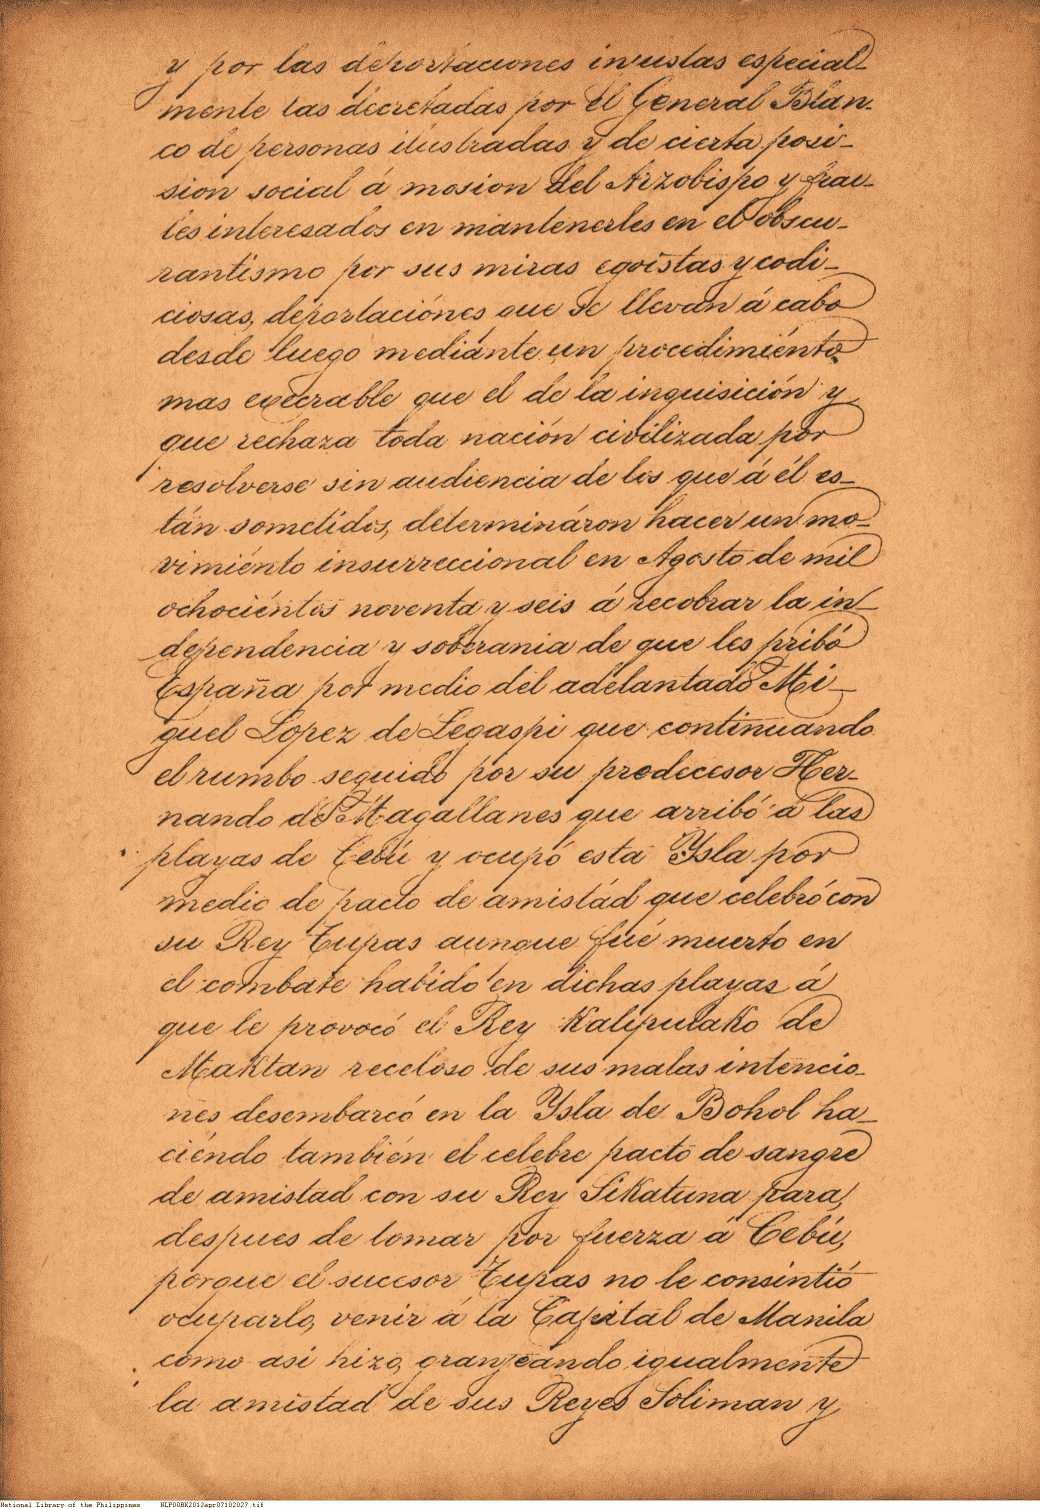 y por las deportaciones injustas especial-
mente las decretadas por el General Blan-
co de personas ilustradas y de cierta posi-
sion social á mosion del Arzobispo y frai-
les interesados en mantenerles en el obscu-
rantismo por sus miras egoistas y codi-
ciosas, deportaciónes que se llevan á cabo
desde luego mediánte un procedimiénto
mas execrable que el de la inquisición y
que rechaza toda nación civilizada por
resolverse sin audiencia de los que á él es-
tán sometidos, determináron hacer un mo-
vimiénto insurreccional en Agosto de mil
ochociéntos noventa y seis á recobrar la in-
dependencia y soberania de que les pribó
España por medio del adelantado Mi-
guel Lopez de Legaspi que continuando
el rumbo seguido por su predecesor Her-
nando de Magallanes que arribó á las
playas de Cebú y ocupó esta Ysla por
medio de pacto de amistád que celebró con
su Rey Tupas aunque fué muerto en
el combate habido en dichas playas á
que le provocó el Rey Kalipulako de
Maktan receloso de sus malas intencio-
nes desembarcó en la Ysla de Bohol ha-
ciéndo también el celebre pacto de sangre
de amistad con su Rey Sikatuna para,
despues de tomar por fuerza á Cebú,
porque el sucesor Tupas no le consintió
ocuparlo, venir á la Capital de Manila
como asi hizo, granjeando igualmente
la amistad de sus Reyes Soliman y
National Library of the Philippines NLPOOBK2012apr07102027.tif